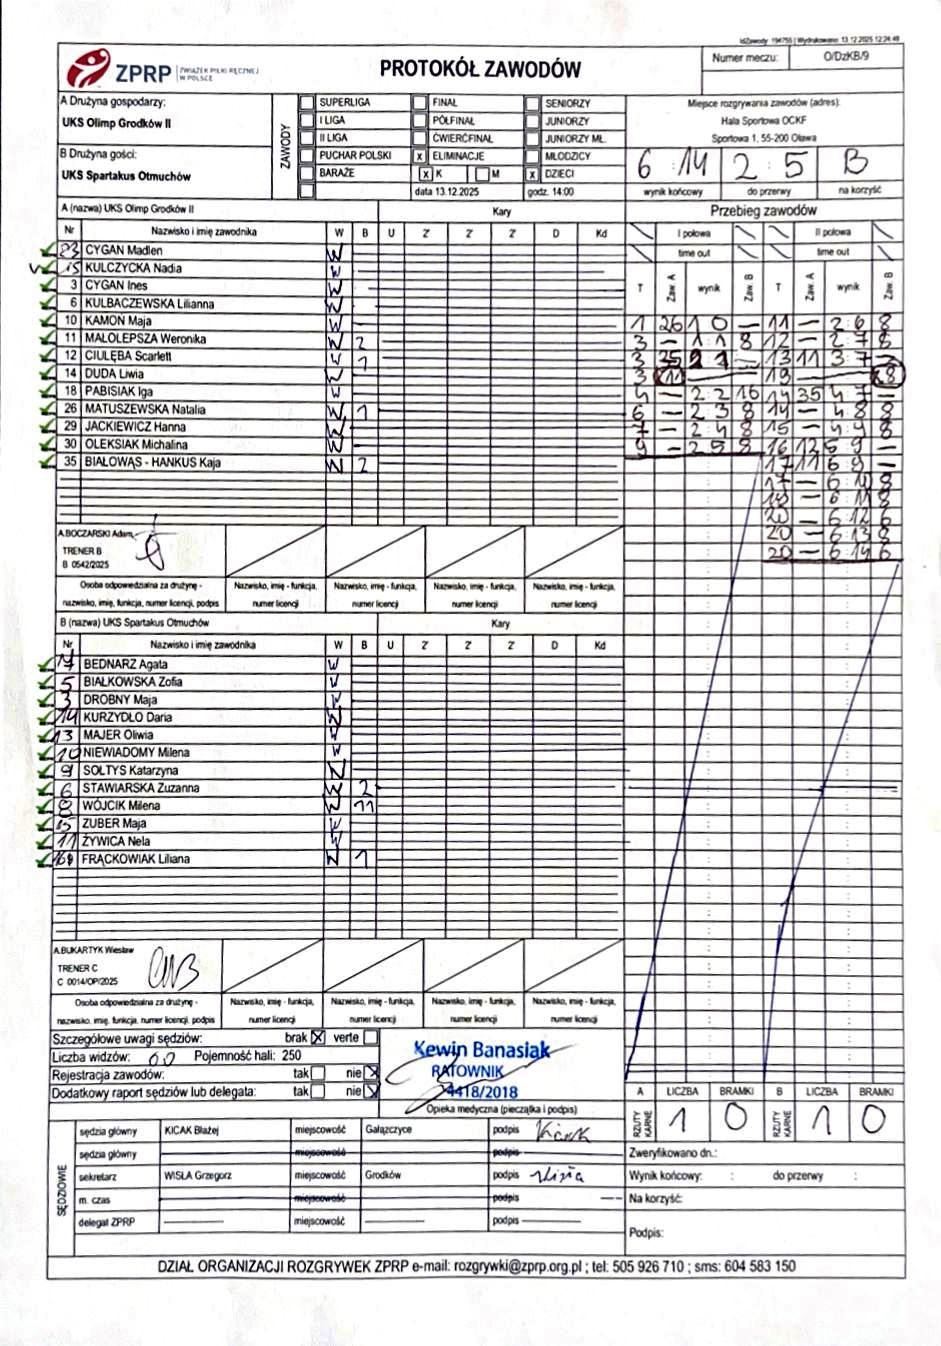 IdZawody: 194755 | Wydrukowano: 13.12.2025 12:24:49
ZPRP ZWIĄZEK PIŁKI RĘCZNEJ W POLSCE
PROTOKÓŁ ZAWODÓW
Numer meczu: O/DzKB/9
A Drużyna gospodarzy:
UKS Olimp Grodków II
B Drużyna gości:
UKS Spartakus Otmuchów
ZAWODY
SUPERLIGA FINAŁ SENIORZY
I LIGA PÓŁFINAŁ JUNIORZY
II LIGA ĆWIERĆFINAŁ JUNIORZY MŁ.
PUCHAR POLSKI x ELIMINACJE MŁODZICY
BARAŻE x K M x DZIECI
data 13.12.2025 godz. 14:00
Miejsce rozgrywania zawodów (adres):
Hala Sportowa OCKF
Sportowa 1, 55-200 Oława
6 : 14 2 : 5 B
wynik końcowy do przerwy na korzyść
A (nazwa) UKS Olimp Grodków II Kary
Nr Nazwisko i imię zawodnika W B U Z' Z' Z' D Kd
83 CYGAN Madlen W
15 KULCZYCKA Nadia W
3 CYGAN Ines W
6 KULBACZEWSKA Lilianna W
10 KAMOŃ Maja W
11 MAŁOLEPSZA Weronika W 2
12 CIULĘBA Scarlett W 1
14 DUDA Liwia W
18 PABISIAK Iga W
26 MATUSZEWSKA Natalia W 1
29 JACKIEWICZ Hanna W
30 OLEKSIAK Michalina W
35 BIAŁOWĄS - HANKUS Kaja W 2
A.BOCZARSKI Adam
TRENER B
B 0542/2025
Osoba odpowiedzialna za drużynę - nazwisko, imię, funkcja, numer licencji, podpis
Nazwisko, imię - funkcja, numer licencji
Nazwisko, imię - funkcja, numer licencji
Nazwisko, imię - funkcja, numer licencji
Nazwisko, imię - funkcja, numer licencji
B (nazwa) UKS Spartakus Otmuchów Kary
Nr Nazwisko i imię zawodnika W B U Z' Z' Z' D Kd
17 BEDNARZ Agata W
5 BIAŁKOWSKA Zofia W
3 DROBNY Maja W
14 KURZYDŁO Daria W
13 MAJER Oliwia W
10 NIEWIADOMY Milena W
9 SOŁTYS Katarzyna W
6 STAWIARSKA Zuzanna W 2
8 WÓJCIK Milena W 11
15 ZUBER Maja W
11 ŻYWICA Nela W
FRĄCKOWIAK Liliana W 1
A.BUKARTYK Wiesław
TRENER C
C 0014/OP/2025
Osoba odpowiedzialna za drużynę - nazwisko, imię, funkcja, numer licencji, podpis
Nazwisko, imię - funkcja, numer licencji
Nazwisko, imię - funkcja, numer licencji
Nazwisko, imię - funkcja, numer licencji
Nazwisko, imię - funkcja, numer licencji
Przebieg zawodów
I połowa II połowa
time out time out
T Zaw. A wynik Zaw. B T Zaw. A wynik Zaw. B
1 26 1 0 — 11 — 2 6 8
3 — 1 1 8 12 — 2 7 8
3 35 2 1 — 13 11 3 7 —
3 11 — 13 — 8
4 — 2 2 16 14 35 4 7 —
6 — 2 3 8 14 — 4 8 8
7 — 2 4 8 15 — 4 9 8
9 — 2 5 8 16 12 5 9 —
17 11 6 9 —
17 — 6 10 8
19 — 6 11 8
20 — 6 12 6
20 — 6 13 8
20 — 6 14 6
Szczegółowe uwagi sędziów: brak X verte
Liczba widzów: 60 Pojemność hali: 250
Rejestracja zawodów: tak nie X
Dodatkowy raport sędziów lub delegata: tak nie X
Kewin Banasiak
RATOWNIK
4418/2018
Opieka medyczna (pieczątka i podpis)
A LICZBA BRAMKI B LICZBA BRAMKI
RZUTY KARNE 1 0 RZUTY KARNE 1 0
SĘDZIOWIE
sędzia główny KICAK Błażej miejscowość Gałązczyce podpis Kicak
sędzia główny miejscowość podpis
sekretarz WISŁA Grzegorz miejscowość Grodków podpis Wisła
m. czas miejscowość podpis
delegat ZPRP miejscowość podpis
Zweryfikowano dn.:
Wynik końcowy: : do przerwy :
Na korzyść:
Podpis:
DZIAŁ ORGANIZACJI ROZGRYWEK ZPRP e-mail: rozgrywki@zprp.org.pl ; tel: 505 926 710 ; sms: 604 583 150